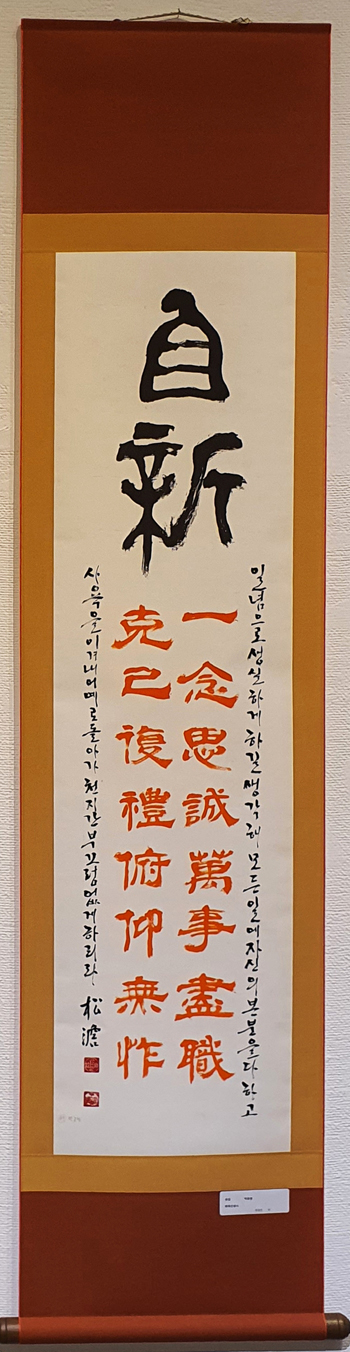 自新
一念思誠萬事盡職
克己復禮俯仰無怍
일념으로 성실하게 하길 생각해 모든일에 자신의 본분을 다 하고
사욕을 이겨내어 예로 돌아가 천지간 부끄럼 없게 하리라
松